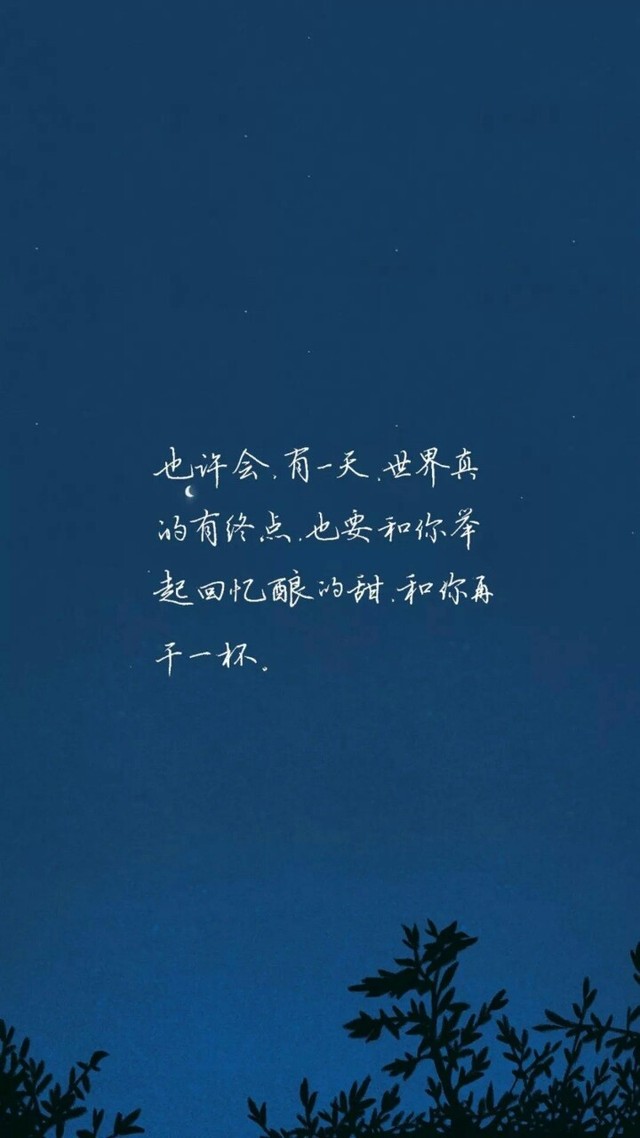 也许会、有一天、世界真
的有终点、也要和你举
起回忆酿的甜、和你再
干一杯。